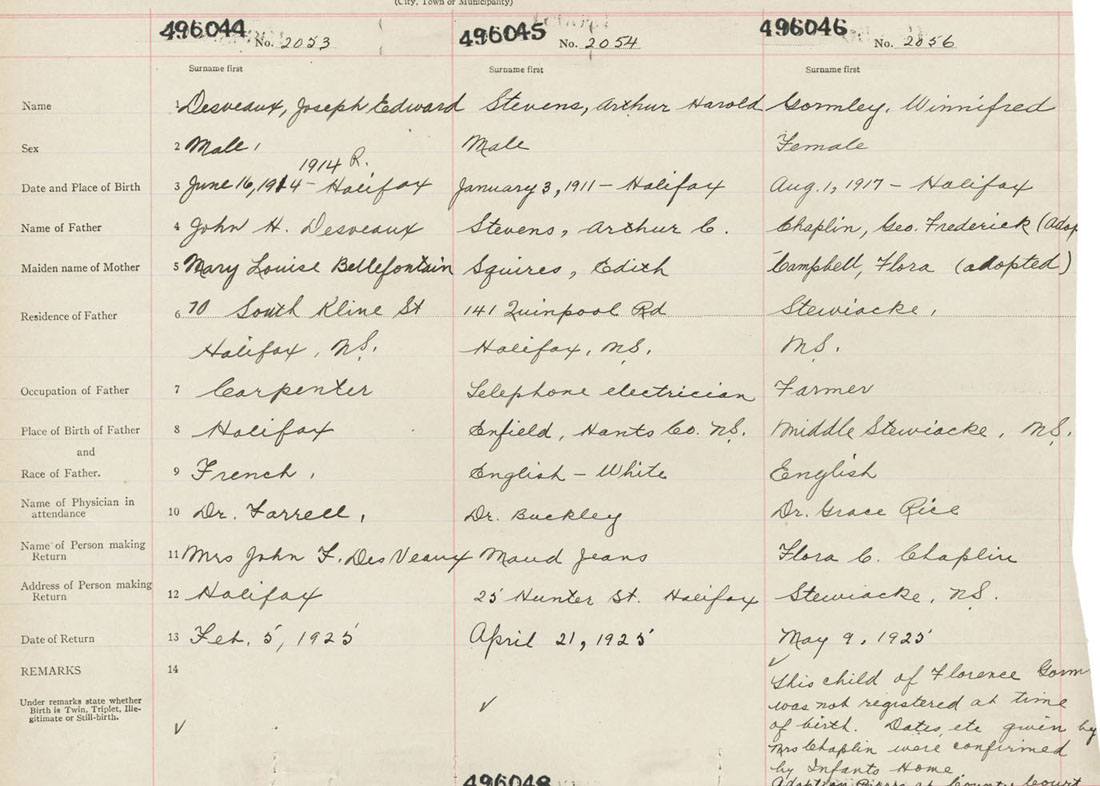 (City, Town or Municipality)
496044 No. 2053 496045 No. 2054 496046 No. 2056
Surname first Surname first Surname first
Name 1 Desveaux, Joseph Edward Stevens, Arthur Harold Gormley, Winnifred
Sex 2 Male Male Female
1914 R.
Date and Place of Birth 3 June 16, 1914 - Halifax January 3, 1911 - Halifax Aug. 1, 1917 - Halifax
Name of Father 4 John H. Desveaux Stevens, Arthur C. Chaplin, Geo. Frederick (Adop
Maiden name of Mother 5 Mary Louise Bellefontain Squires, Edith Campbell, Flora (adopted)
Residence of Father 6 70 South Kline St 141 Quinpool Rd Stewiacke,
Halifax, N.S. Halifax, N.S. N.S.
Occupation of Father 7 Carpenter Telephone electrician Farmer
Place of Birth of Father 8 Halifax Enfield, Hants Co. N.S. Middle Stewiacke, N.S.
and
Race of Father. 9 French, English - White English
Name of Physician in
attendance 10 Dr. Farrell, Dr. Buckley Dr. Grace Rice
Name of Person making
Return 11 Mrs John F. DesVeaux Maud Jeans Flora C. Chaplin
Address of Person making
Return 12 Halifax 25 Hunter St. Halifax Stewiacke, N.S.
Date of Return 13 Feb. 5, 1925 April 21, 1925 May 9, 1925
REMARKS 14
Under remarks state whether
Birth is Twin, Triplet, Ille-
gitimate or Still-birth.
This child of Florence Gorm
was not registered at time
of birth. Dates etc given by
Mrs Chaplin were confirmed
by Infants Home
Adoption at County Court
496048